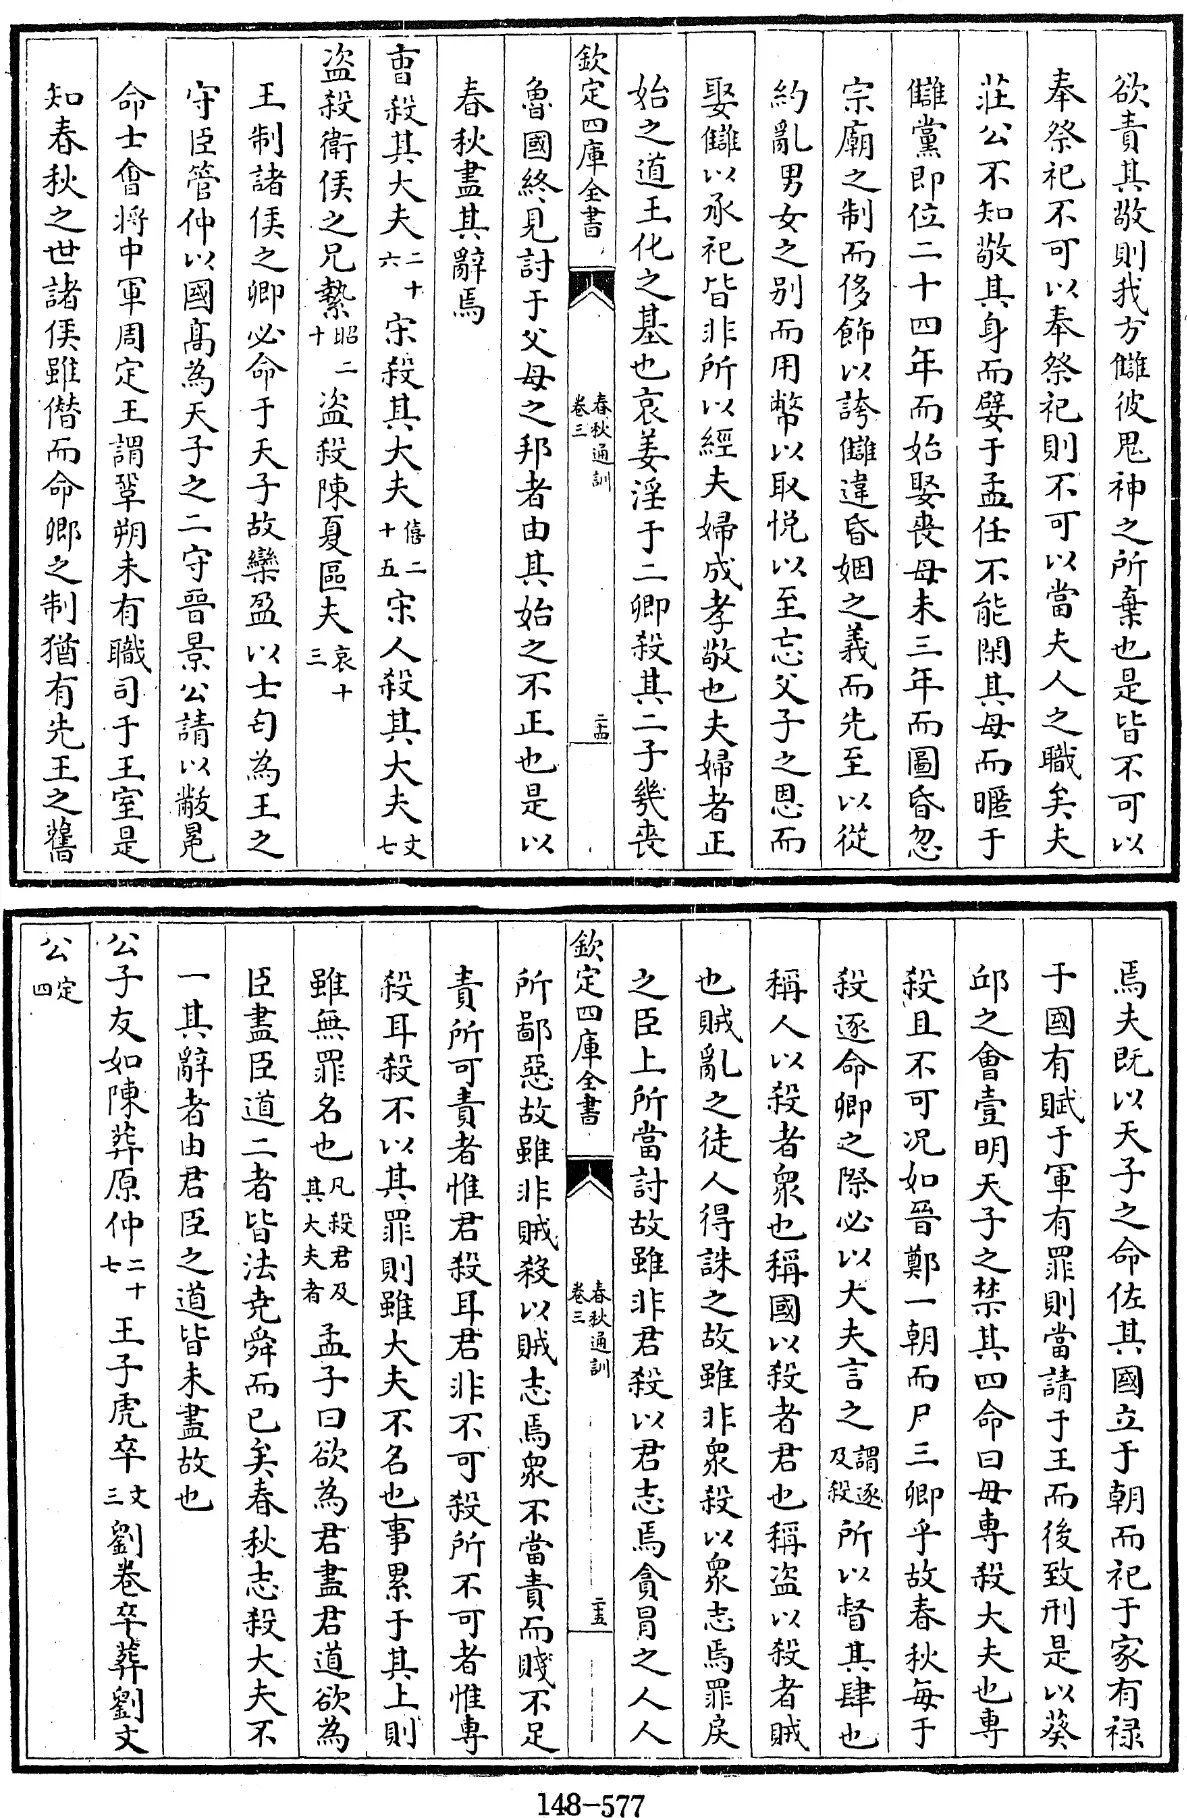 欲責其敬則我方讎彼鬼神之所棄也是皆不可以
奉祭祀不可以奉祭祀則不可以當夫人之職矣夫
莊公不知敬其身而嬖于孟任不能閑其母而暱于
讎黨即位二十四年而始娶喪母未三年而圖昏忽
宗廟之制而侈飾以誇讎違昏姻之義而先至以從
約亂男女之别而用幣以取悦以至忘父子之恩而
娶讎以承祀皆非所以經夫婦成孝敬也夫婦者正
始之道王化之基也哀姜淫于二卿殺其二子幾喪
欽定四庫全書
春秋通訓
卷三
二十四
魯國終見討于父母之邦者由其始之不正也是以
春秋盡其辭焉
曹殺其大夫二十六宋殺其大夫僖二十五宋人殺其大夫文七
盗殺衛侯之兄縶昭二十盗殺陳夏區夫哀十三
王制諸侯之卿必命于天子故欒盈以士匄為王之
守臣管仲以國髙為天子之二守晉景公請以黻冕
命士會将中軍周定王謂鞏朔未有職司于王室是
知春秋之世諸侯雖僭而命卿之制猶有先王之舊
焉夫既以天子之命佐其國立于朝而祀于家有禄
于國有賦于軍有罪則當請于王而後致刑是以葵
邱之會壹明天子之禁其四命曰毋專殺大夫也專
殺且不可况如晉鄭一朝而尸三卿乎故春秋每于
殺逐命卿之際必以大夫言之謂逐及殺所以督其肆也
稱人以殺者衆也稱國以殺者君也稱盗以殺者賊
也賊亂之徒人得誅之故雖非衆殺以衆志焉罪戾
之臣上所當討故雖非君殺以君志焉貪冒之人人
欽定四庫全書
春秋通訓
卷三
二十五
所鄙惡故雖非賊殺以賊志焉衆不當責而賤不足
責所可責者惟君殺耳君非不可殺所不可者惟專
殺耳殺不以其罪則雖大夫不名也事累于其上則
雖無罪名也凡殺君及其大夫者孟子曰欲為君盡君道欲為
臣盡臣道二者皆法堯舜而已矣春秋志殺大夫不
一其辭者由君臣之道皆未盡故也
公子友如陳葬原仲二十七王子虎卒文三劉卷卒葬劉文
公定四
148-577